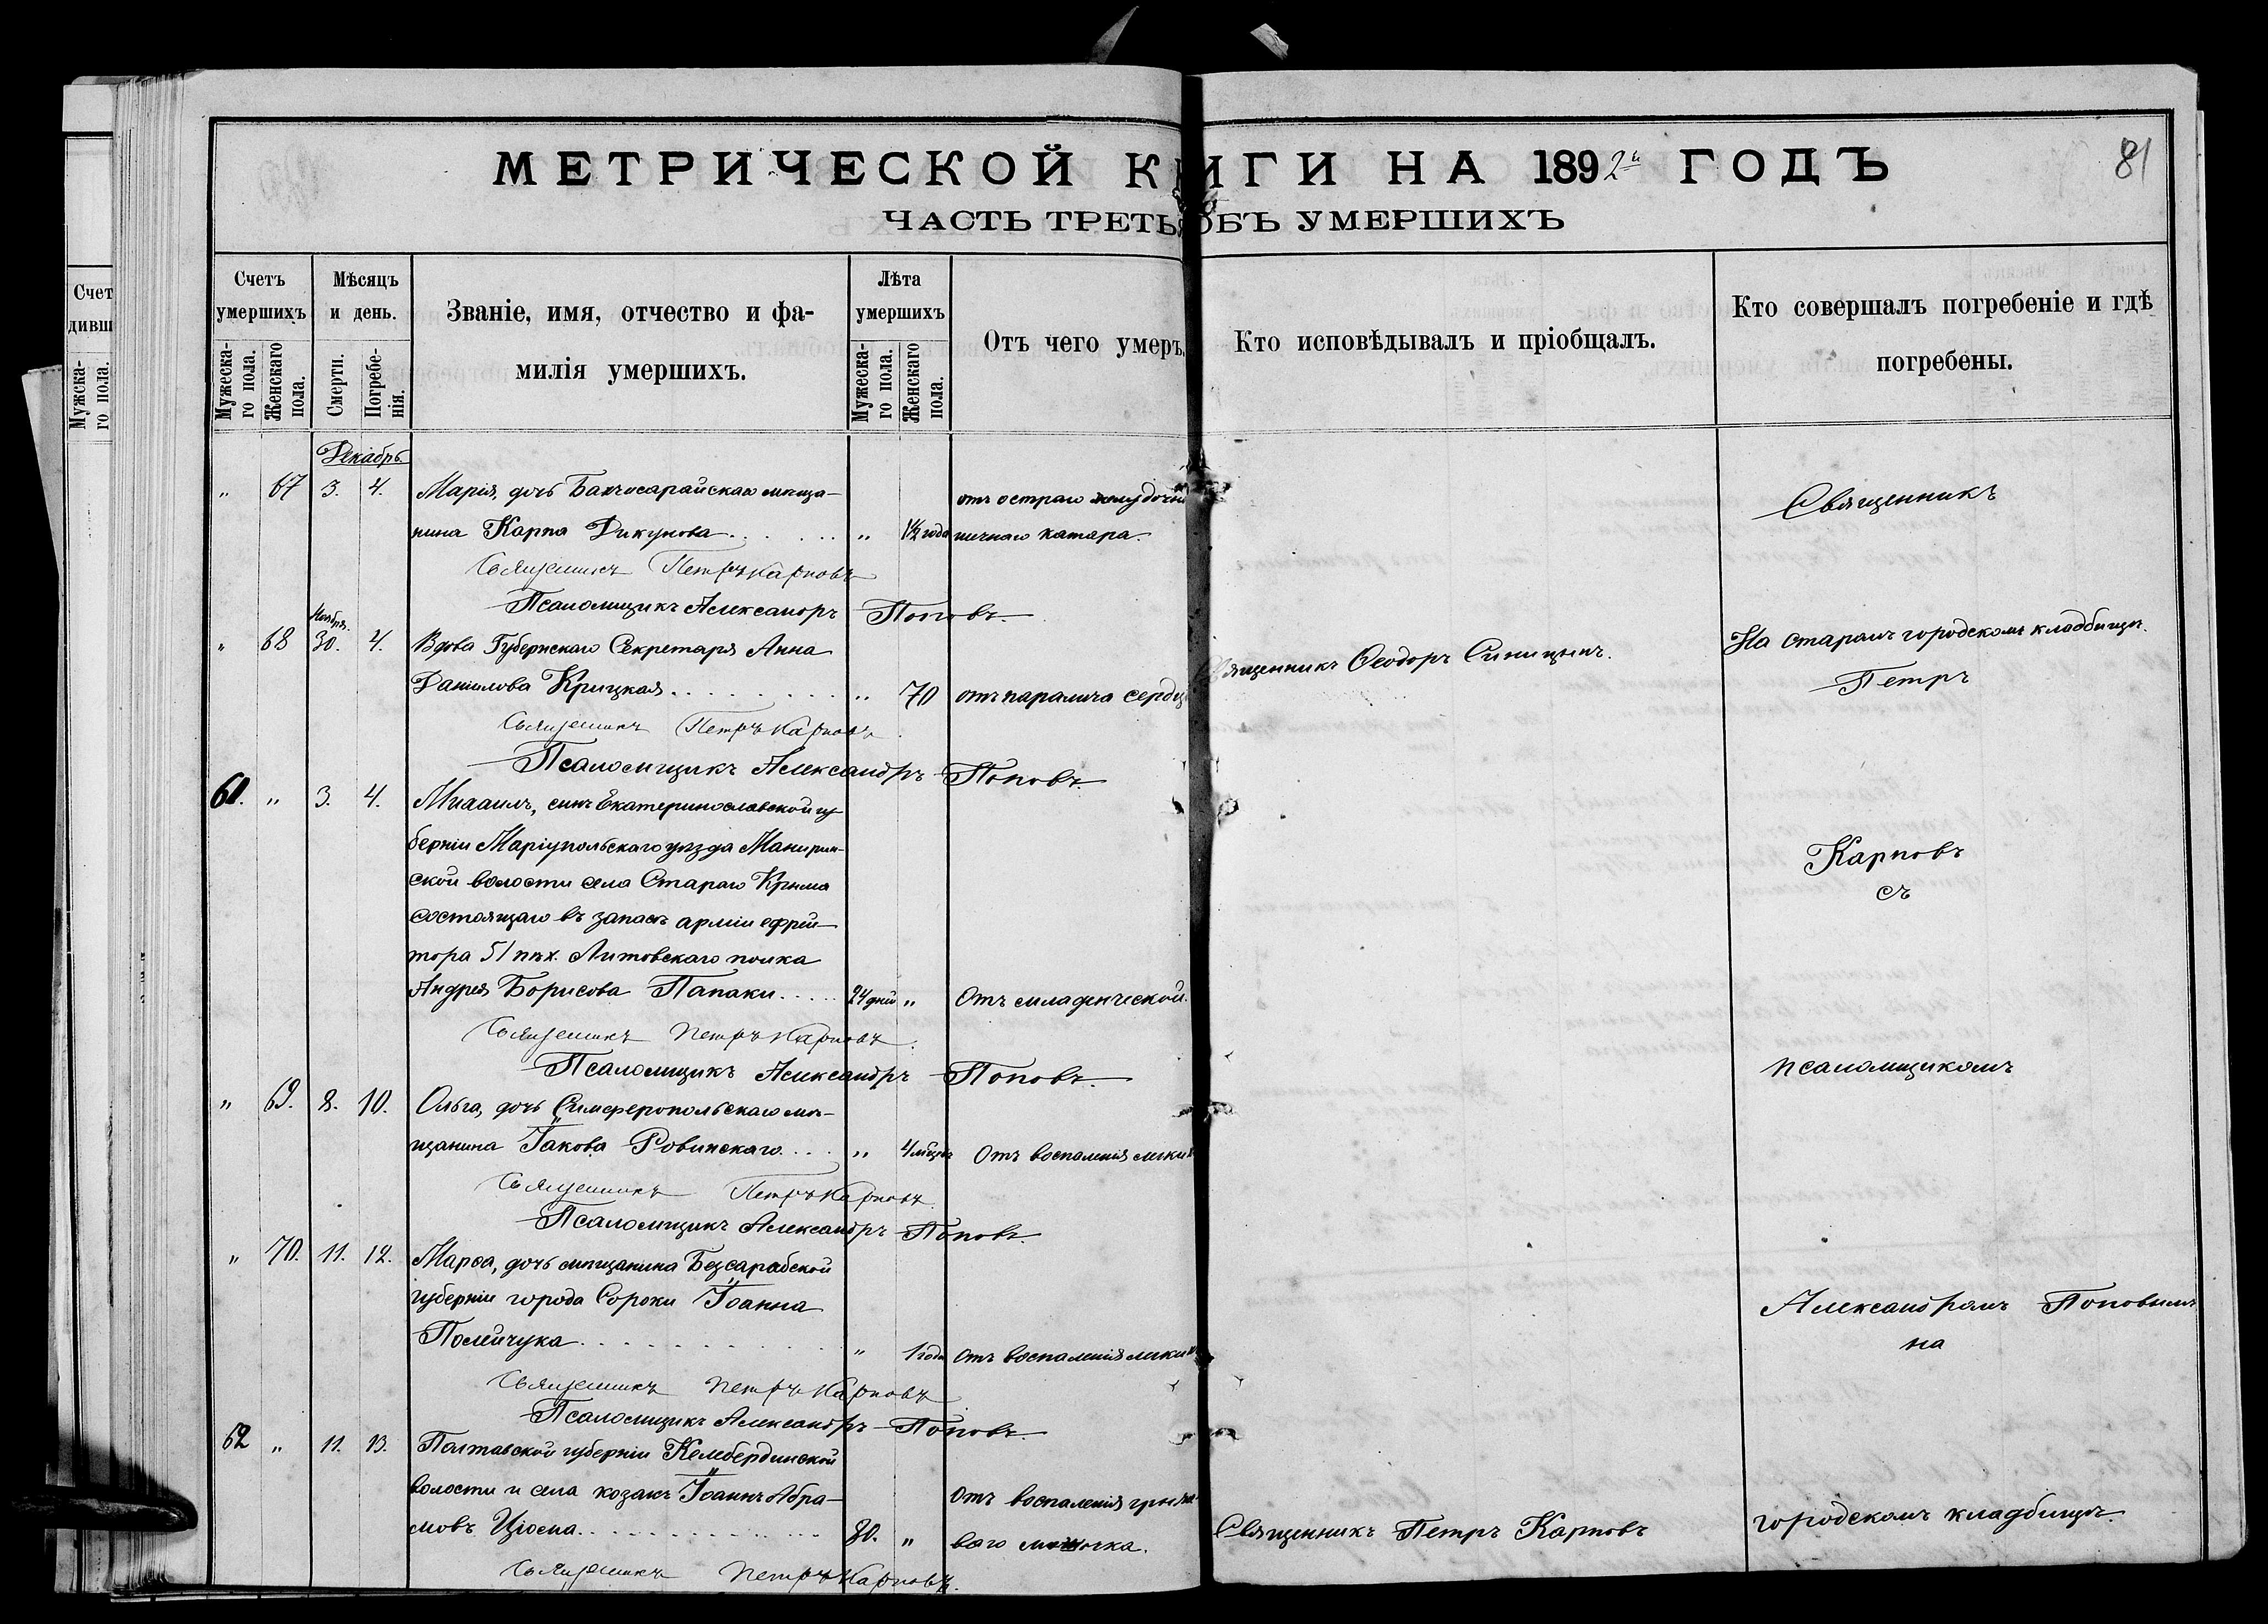 МЕТРИЧЕСКОЙ КНИГИ НА 1892й ГОДЪ
81
ЧАСТЬ ТРЕТЬЯ ОБЪ УМЕРШИХЪ
Счетъ умершихъ
Мужеска-го пола.
Женскаго пола.
Мѣсяцъ и день.
Смерти.
Погребе-нія.
Званіе, имя, отчество и фа-
милія умершихъ.
Лѣта умершихъ
Мужеска-го пола.
Женскаго пола.
Отъ чего умеръ.
Кто исповѣдывалъ и пріобщалъ.
Кто совершалъ погребеніе и гдѣ
погребены.
Декабрь
„ 67 3. 4. Марія, дочь Бахчисарайскаго мѣща-
нина Карпа Дикунова . . . . . „ 1½ года отъ остраго желудочно
кишечнаго катара.
Священникъ
Священникъ Петръ Карповъ
Псаломщикъ Александръ Поповъ.
Ноября.
„ 68 30. 4. Вдова Губернскаго Секретаря Анна
Даніилова Крицкая . . . . . . . . „ 70 отъ паралича сердца
Священникъ Ѳеодоръ Синицынъ.
На старомъ городскомъ кладбищѣ.
Петръ
Священникъ Петръ Карповъ
Псаломщикъ Александръ Поповъ.
61. „ 3. 4. Михаилъ, сынъ Екатеринославской гу
берніи Маріупольскаго уѣзда
ской волости села Стараго Крыма
состоящаго въ запасѣ арміи ефрей-
тора 51 пѣх. Литовскаго полка
Андрея Борисова Папаки . . . . 24 дней „ Отъ младенческой.
Карповъ
съ
Священникъ Петръ Карповъ
Псаломщикъ Александръ Поповъ.
псаломщикомъ
„ 69. 8. 10. Ольга, дочь Симферопольскаго мѣ-
щанина Іакова Ровинскаго . . . . „ 4 мѣсяц Отъ воспаленія легкихъ
Священникъ Петръ Карповъ
Псаломщикъ Александръ Поповъ.
„ 70. 11. 12. Марѳа, дочь мѣщанина Бессарабской
губерніи города Сороки Іоанна
Полейчука . . . . . . . . . . . „ 1 года отъ воспаленія легкихъ
Александромъ Поповымъ
на
Священникъ Петръ Карповъ
Псаломщикъ Александръ Поповъ.
62 „ 11. 13. Полтавской губерніи Келебердинской
волости и села козакъ Іоаннъ Абра-
мовъ Цюпа . . . . . . . . . . 80. „ Отъ воспаленія грыже-
ваго мѣшочка.
Священникъ Петръ Карповъ
городскомъ кладбищѣ.
Священникъ Петръ Карповъ.
Счет
дивш
Мужска-го пола.